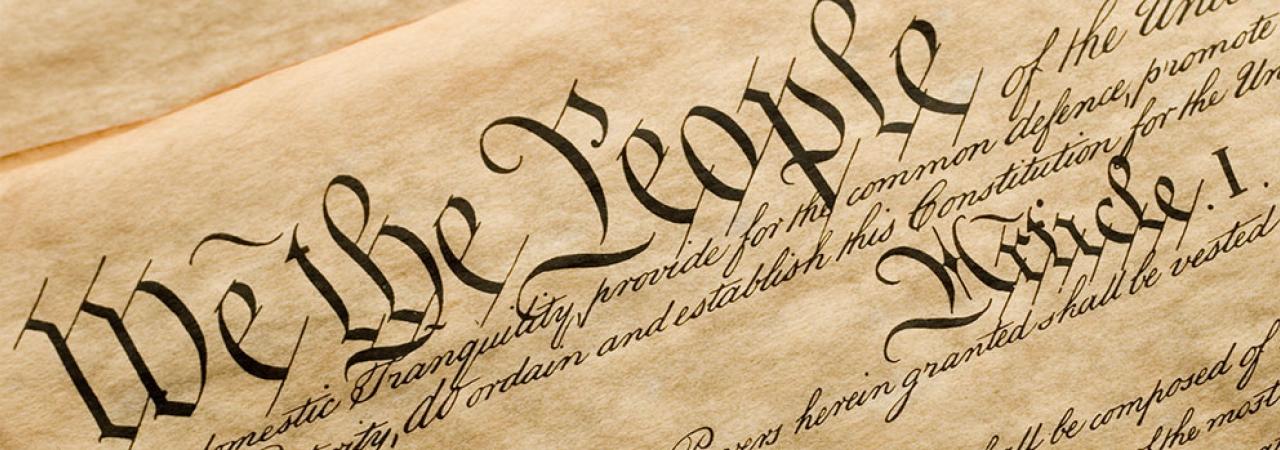 We the People of the
domestic Tranquility, provide for the common defence, promote
do ordain and establish this Constitution for the
Article. I.
herein granted shall be vested
be composed of
of the most